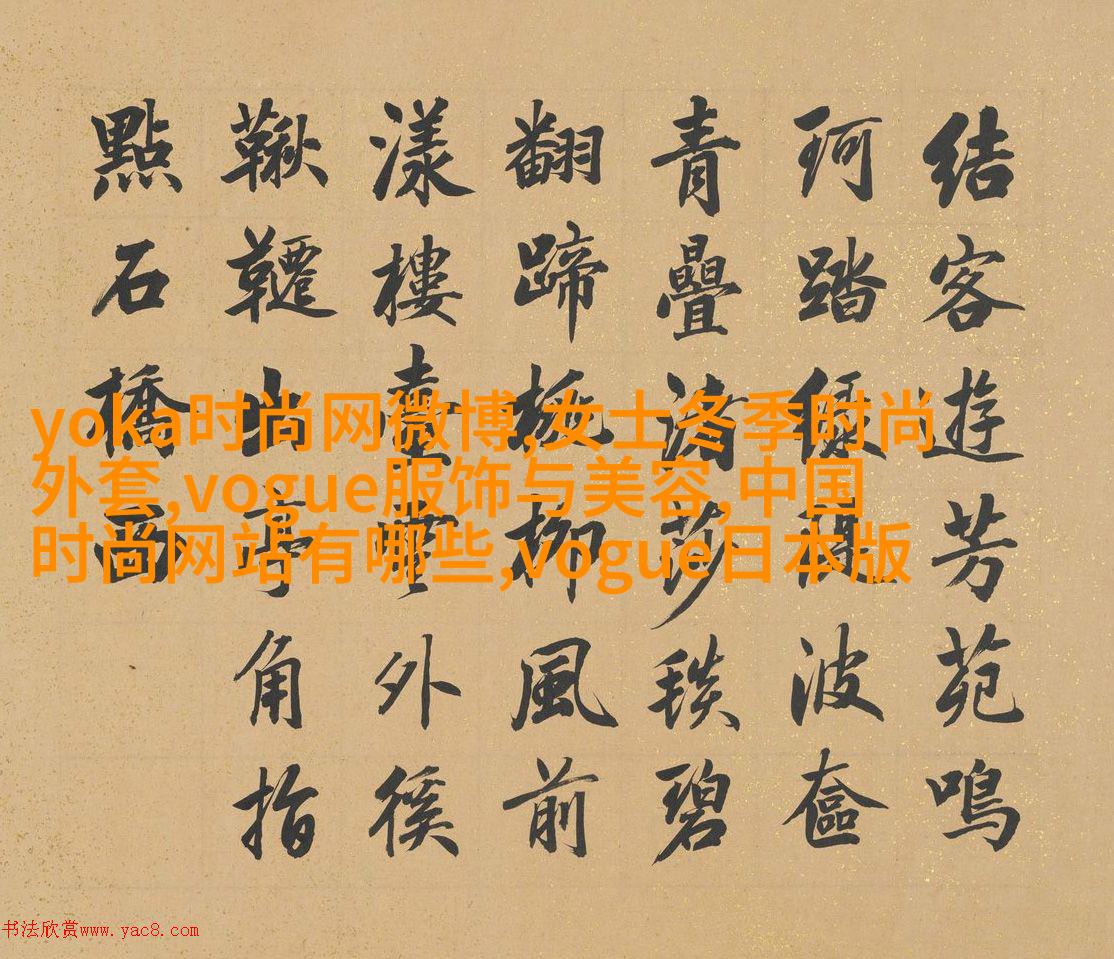 結客遊芳苑鳴
珂踏綠堤波奩
青疊莎毯碧
翻蹄桃柳風前
漾樓臺雲外徯
鞦韆出亭角指
點石橋西
yoka时尚网微博,女士冬季时尚
外套,vogue服饰与美容,中国
时尚网站有哪些,vogue日本版
书法欣赏www.yac8.com